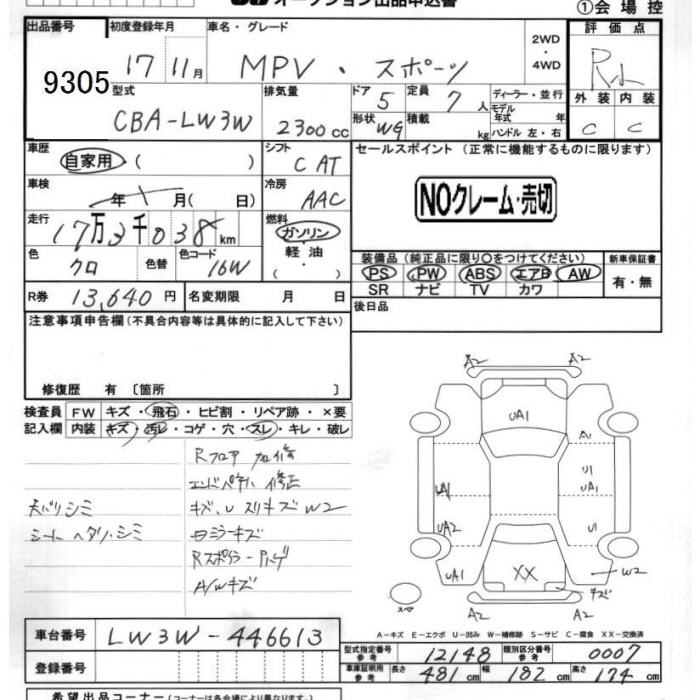 オークション出品申込書
①会場控
出品番号
9305
初度登録年月
17 11月
車名・グレード
MPV・スポーツ
2WD
・
4WD
評価点
外装 内装
C C
型式
CBA-LW3W
排気量
2300cc
ドア
5
形状
WG
定員
7人
積載
kg
ディーラー・並行
モデル
年式 年
ハンドル 左・右
車歴
自家用 ( )
シフト
C AT
セールスポイント (正常に機能するものに限ります)
NOクレーム・売切
車検
年 月( 日)
冷房
AAC
走行
17万3千038km
燃料
ガソリン
・
軽油
( )
色
クロ
色替
色コード
16W
装備品 (純正品に限り○をつけてください)
PS PW ABS エアB AW
SR ナビ TV カワ
新車保証書
有・無
R券 13,640円
名変期限 月 日
後日品
注意事項申告欄(不具合内容等は具体的に記入して下さい)
修復歴 有 〔箇所 〕
検査員
記入欄
FW キズ・飛石・ヒビ割・リペア跡・×要
内装 キズ・汚レ・コゲ・穴・スレ・キレ・破レ
Rフロア 加修
修正
天バリシミ
キズ、U スリキズ W2
シート ヘタリ・シミ
ミラーキズ
A/Wキズ
A2 A2
UA1
A1
U1
UA1 UA1
UA2 U1
UA1 XX W2
キズ
スマ
A2 A2
A-キズ E-エクボ U-凹み W-補修跡 S-サビ C-腐食 XX-交換済
車台番号 LW3W-446613
登録番号
型式指定番号
参考
12148
類別区分番号
参考
0007
車庫証明用
参考
長さ 481cm 幅 182cm 高さ 174cm
希望出品コーナー(コーナーは各会場